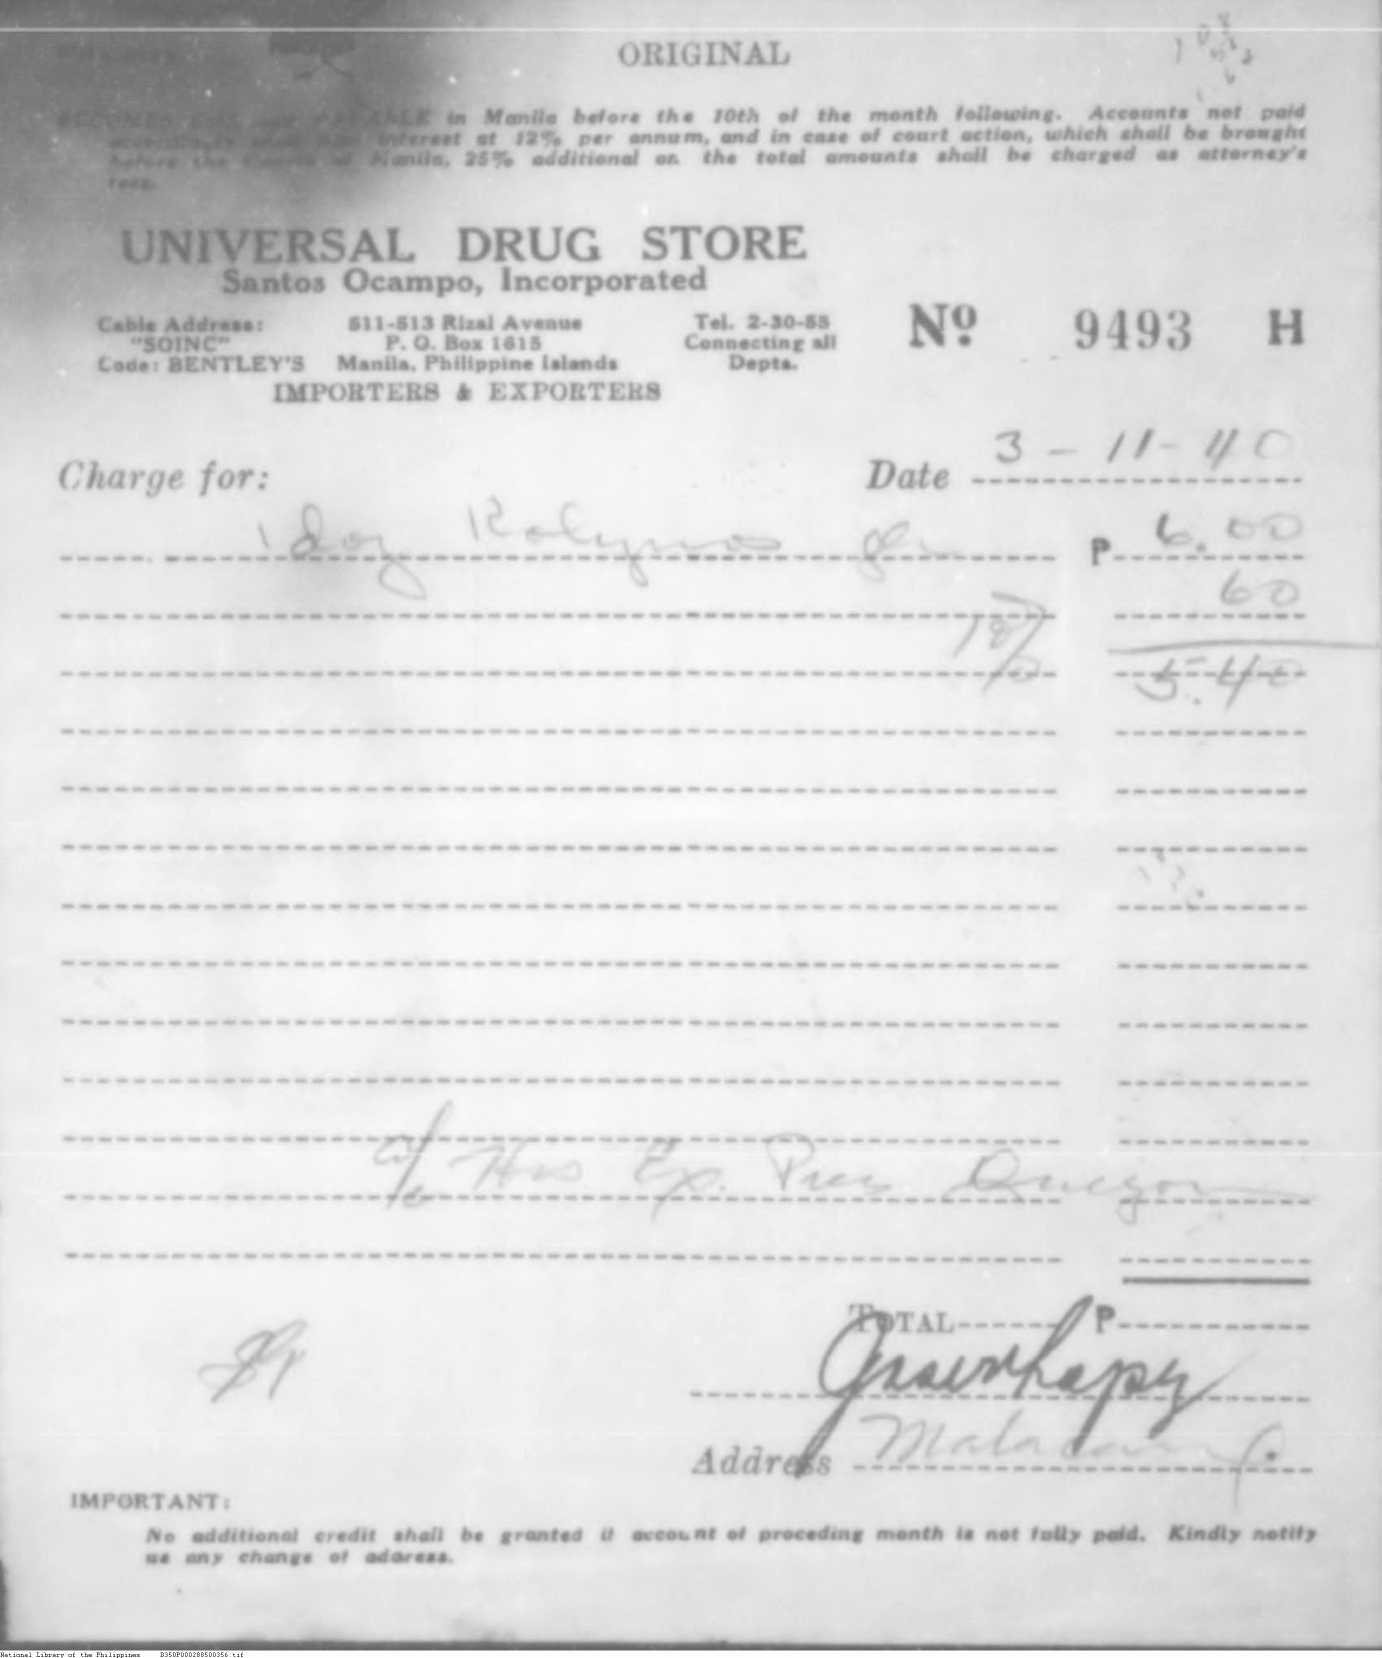 ORIGINAL
in Manila before the 10th of the month following. Accounts not paid
interest at 12% per annum, and in case of court action, which shall be brought
before the Courts of Manila, 25% additional on the total amounts shall be charged as attorney's
fees.
UNIVERSAL DRUG STORE
Santos Ocampo, Incorporated
Cable Address: 511-513 Rizal Avenue Tel. 2-30-55
"SOINC" P. O. Box 1615 Connecting all
Code: BENTLEY'S Manila, Philippine Islands Depts.
IMPORTERS & EXPORTERS
Nº 9493 H
Charge for: Date 3-11-40
1 doz Kolynos P 6.00
60
5.40
a/c Hrs Ex. Pres Quezon
TOTAL P
Address Malacañang
IMPORTANT:
No additional credit shall be granted if account of proceding month is not fully paid. Kindly notify
us any change of address.
National Library of the Philippines B350P000288500356.tif